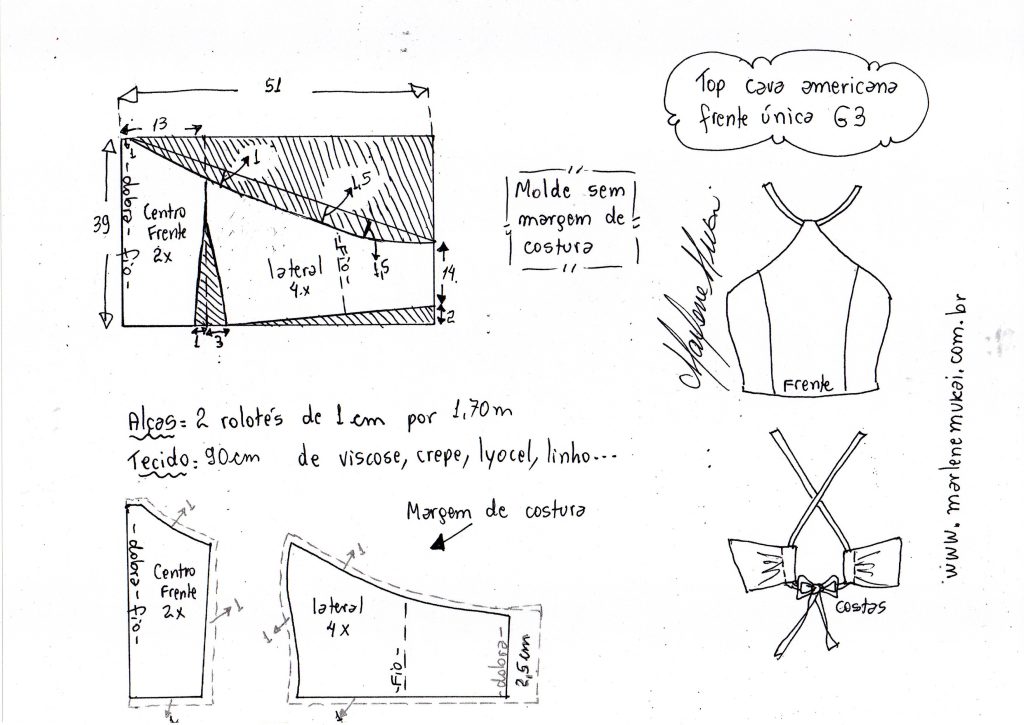 51
13
1
- dobra - fio -
39
Centro
Frente
2x
1
1,5
1,5
lateral
4.x
- Fio -
14.
2
1
3
Molde sem
margem de
costura
Top cava americana
frente única G3
Marlene Mukai.
Frente
www.marlenemukai.com.br
Alças: 2 rolotés de 1 cm por 1,70m
Tecido: 90cm de viscose, crepe, lyocel, linho...
Margem de costura
1
- dobra - fio -
Centro
Frente
2x
1
1
1
lateral
4x
1
- Fio -
- dobra -
2,5cm
1
costas